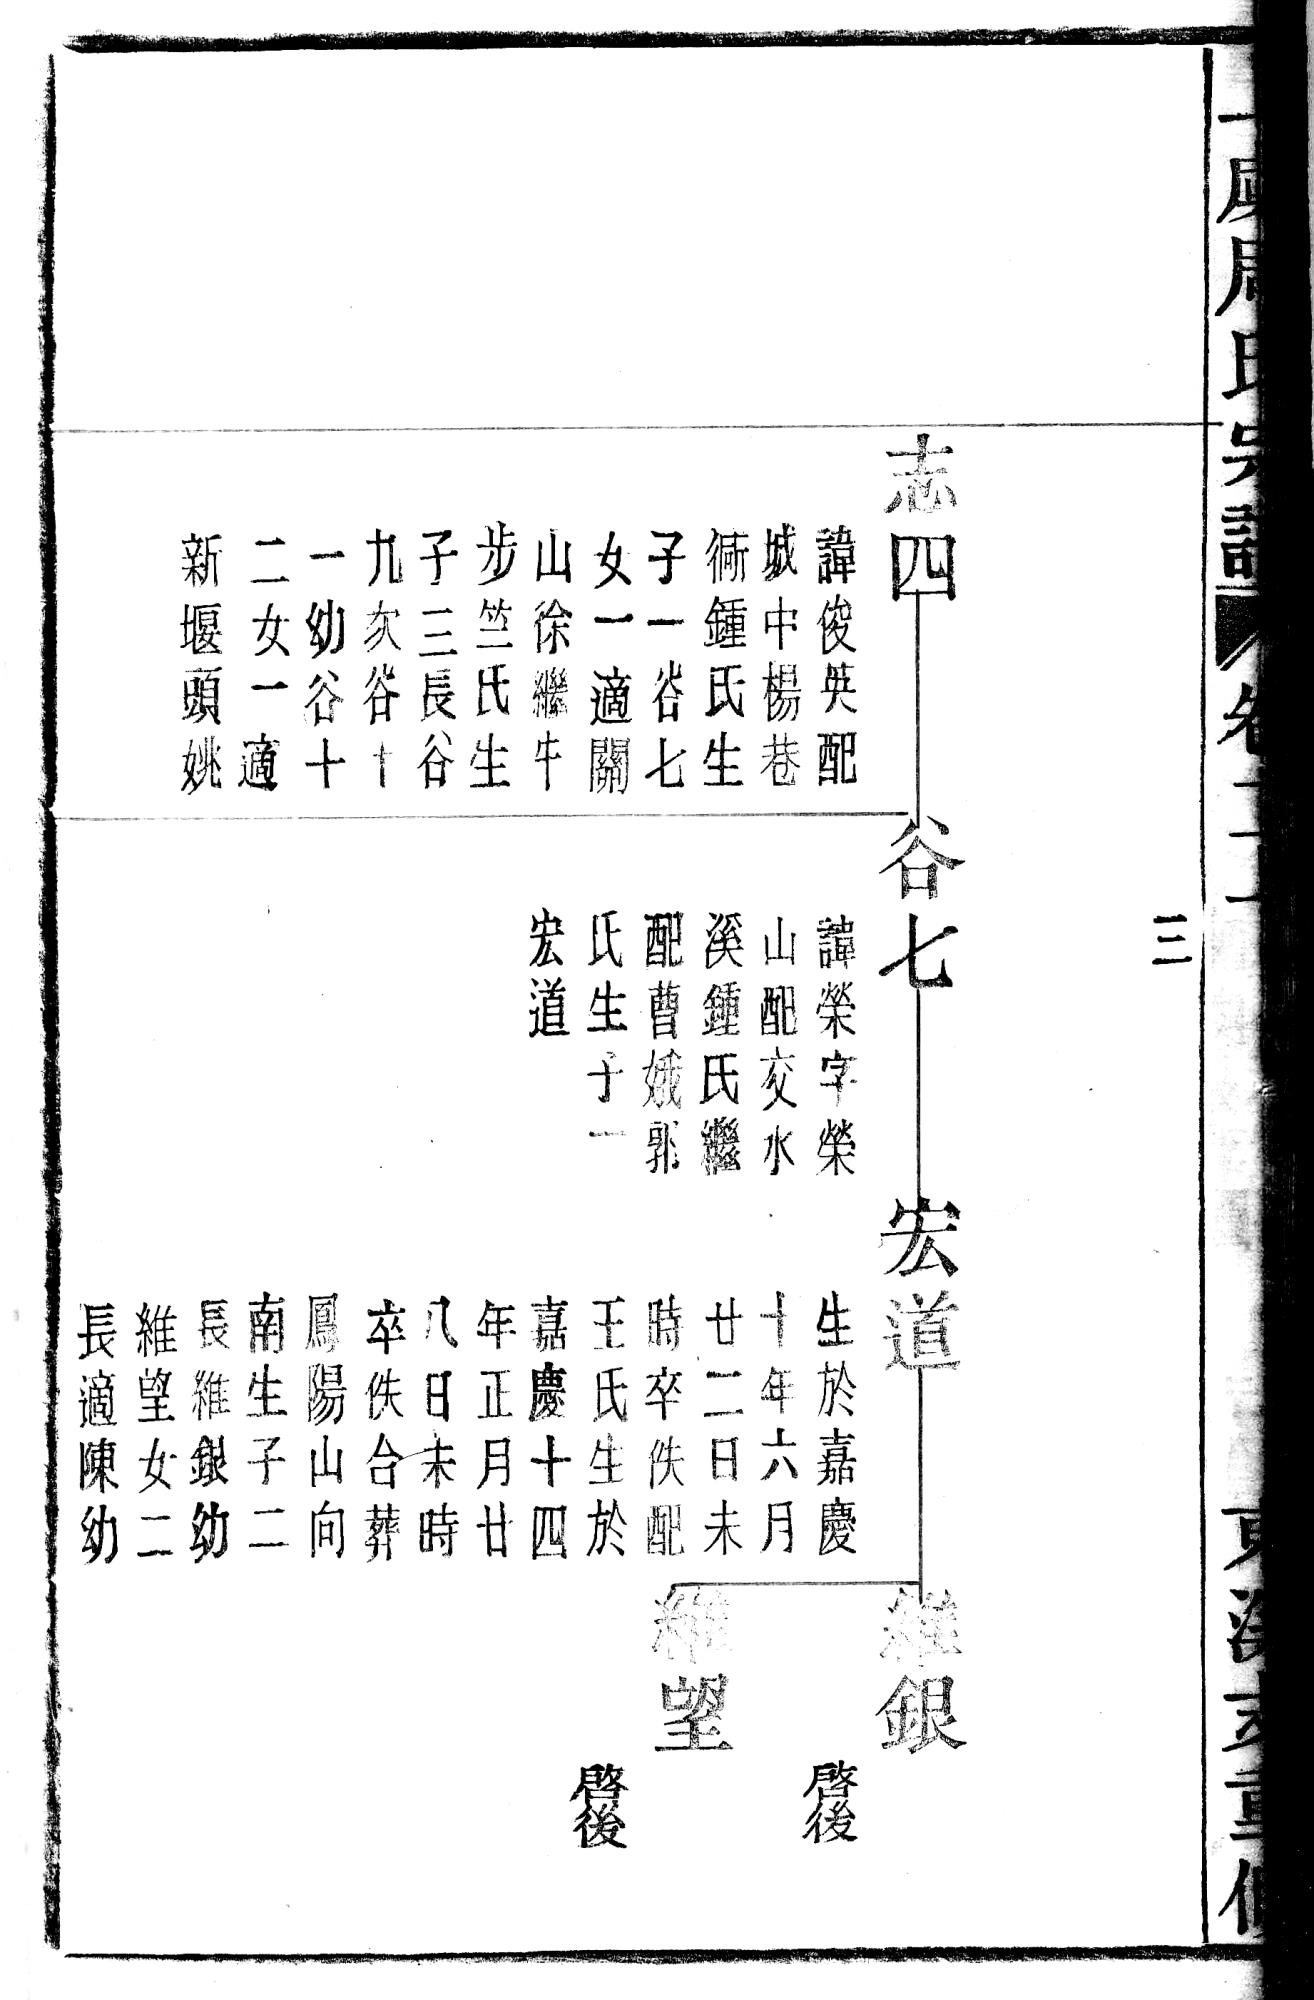 三
志四
諱俊英配
城中楊巷
衖鍾氏生
子一谷七
女一適關
山徐繼牛
步竺氏生
子三長谷
九次谷十
一幼谷十
二女一適
新堰頭姚
谷七
諱榮字榮
山配交水
溪鍾氏繼
配曹娥郭
氏生子一
宏道
宏道
生於嘉慶
十年六月
廿二日未
時卒佚配
王氏生於
嘉慶十四
年正月廿
八日未時
卒佚合葬
鳳陽山向
南生子二
長維銀幼
維望女二
長適陳幼
維銀
啓後
維望
啓後